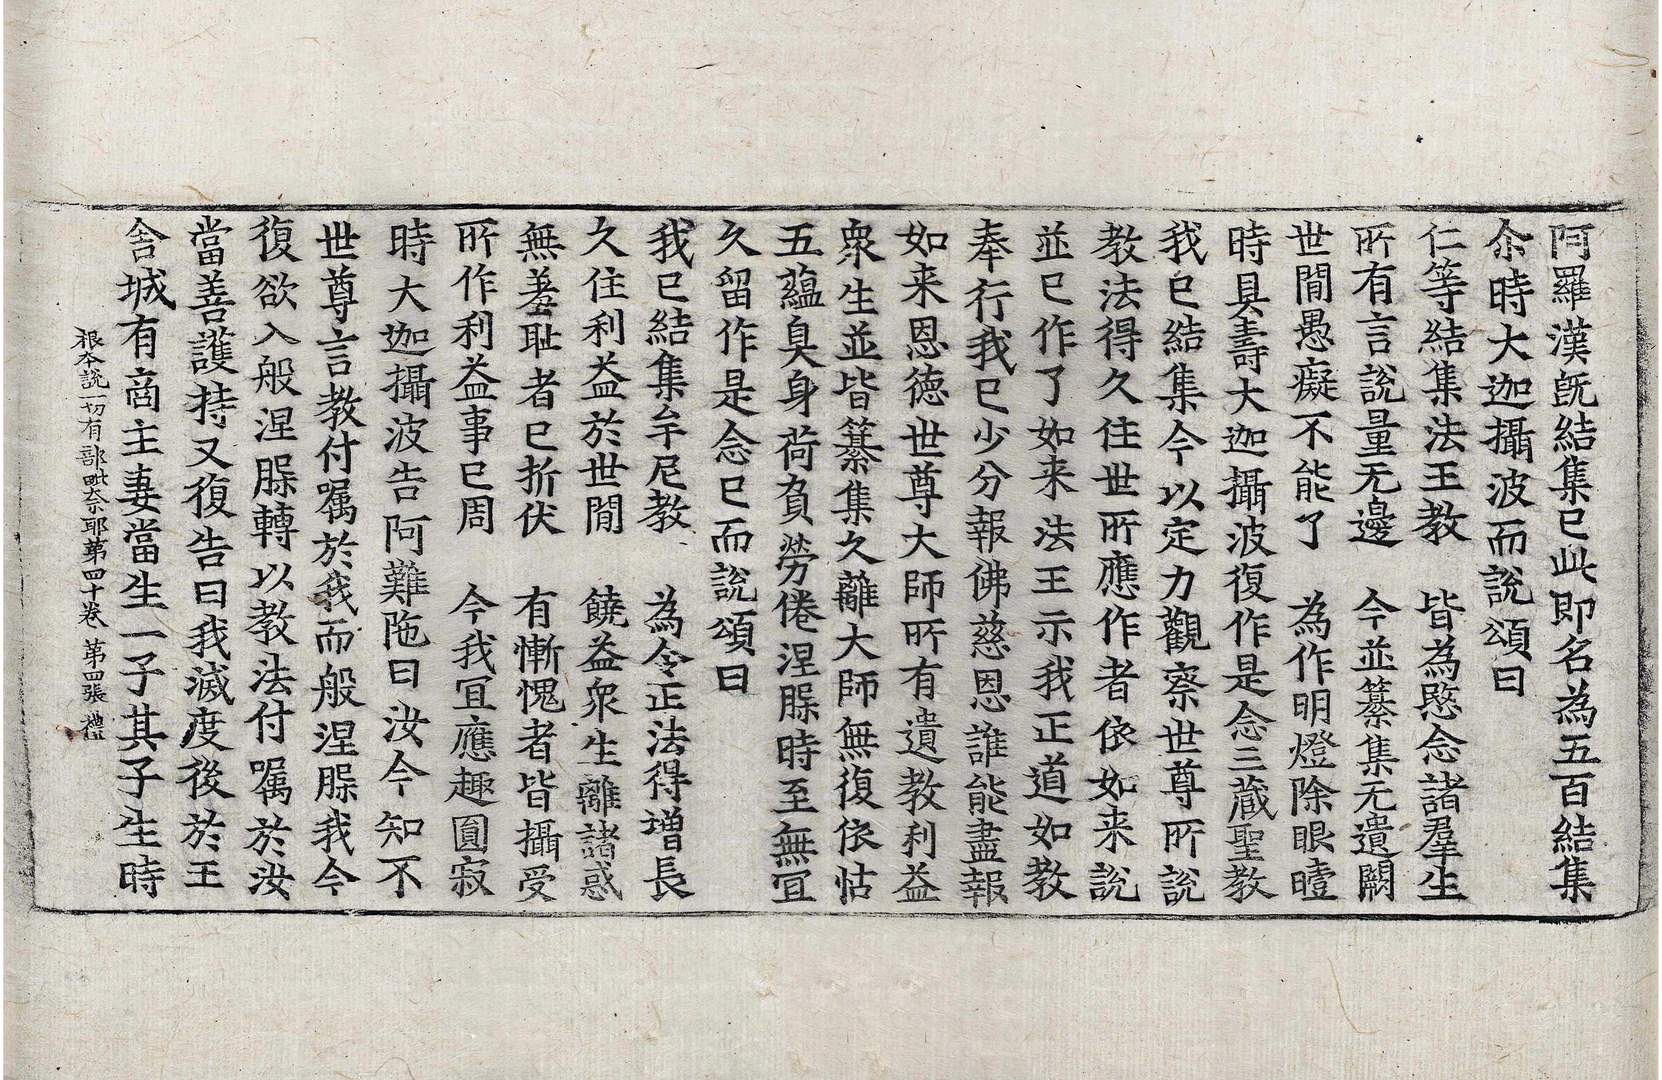 阿羅漢旣結集已此即名為五百結集
尒時大迦攝波而說頌曰
仁等結集法王教　皆為愍念諸羣生
所有言說量无邊　今並纂集无遺闕
世間愚癡不能了　為作明燈除眼曀
時具壽大迦攝波復作是念三藏聖教
我已結集今以定力觀察世尊所說
教法得久住世所應作者依如来說
並已作了如来法王示我正道如教
奉行我已少分報佛慈恩誰能盡報
如来恩德世尊大師所有遺教利益
衆生並皆纂集久離大師無復依怙
五蘊臭身荷負勞倦涅槃時至無冝
久留作是念已而說頌曰
我已結集牟尼教　為令正法得增長
久住利益於世間　饒益衆生離諸惑
無羞耻者已折伏　有慚愧者皆攝受
所作利益事已周　今我冝應趣圓寂
時大迦攝波告阿難陁曰汝今知不
世尊言教付嘱於我而般涅槃我今
復欲入般涅槃轉以教法付嘱於汝
當善護持又復告曰我滅度後於王
舎城有商主妻當生一子其子生時
根本說一切有部毗奈耶苐四十卷　第四張　禮